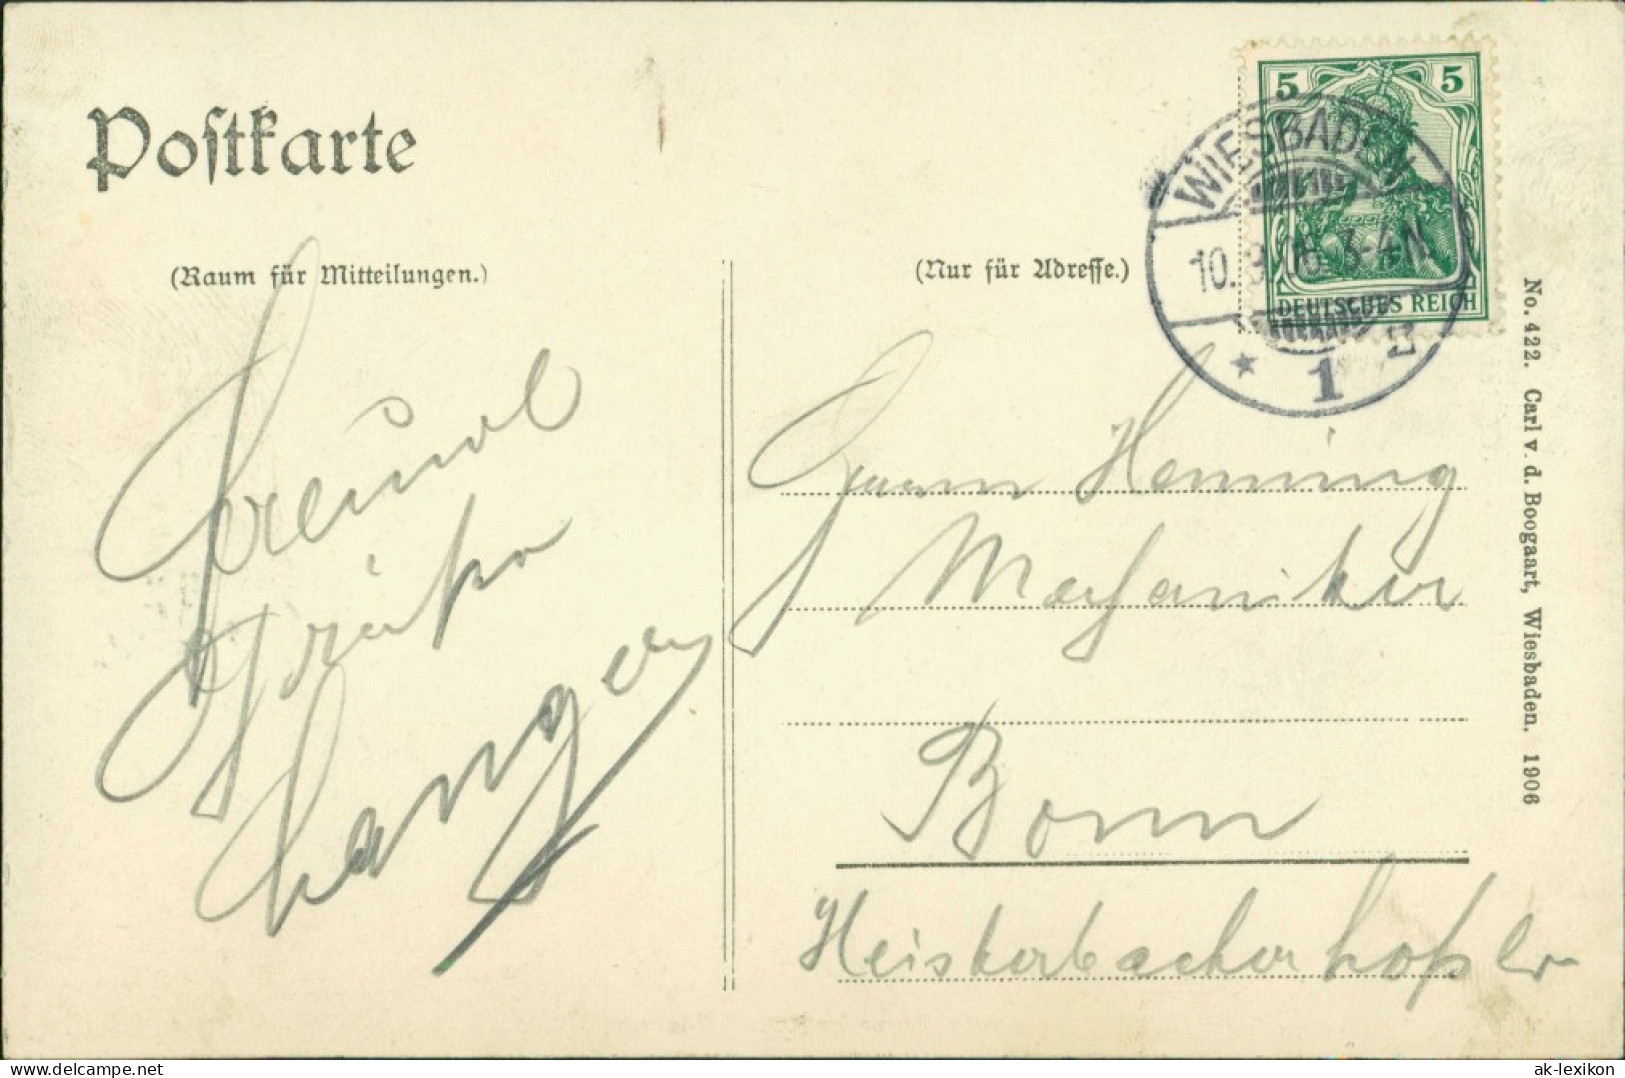 Postkarte
(Raum für Mitteilungen.)
(Nur für Adresse.)
5 5
DEUTSCHES REICH
WIESBADEN
10. 8. 06. 3-4 N
* 1
No. 422. Carl v. d. Boogaart, Wiesbaden. 1906
Freundl
Grüße
Langer
Herrn Henning
Mechaniker
Bonn
Heisterbacherhofstr
hip.net
ak-lexikon